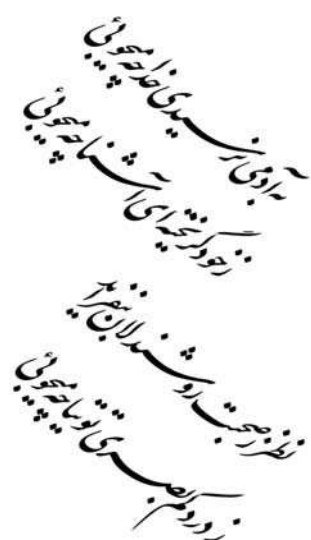 به آدمی نرسیدی خدا چه میجوئی
ز خود گریخته‌ای آشنا چه میجوئی
نظر ز صحبت روشندلان بیفزاید
ز درد کم بصری توتیا چه میجوئی